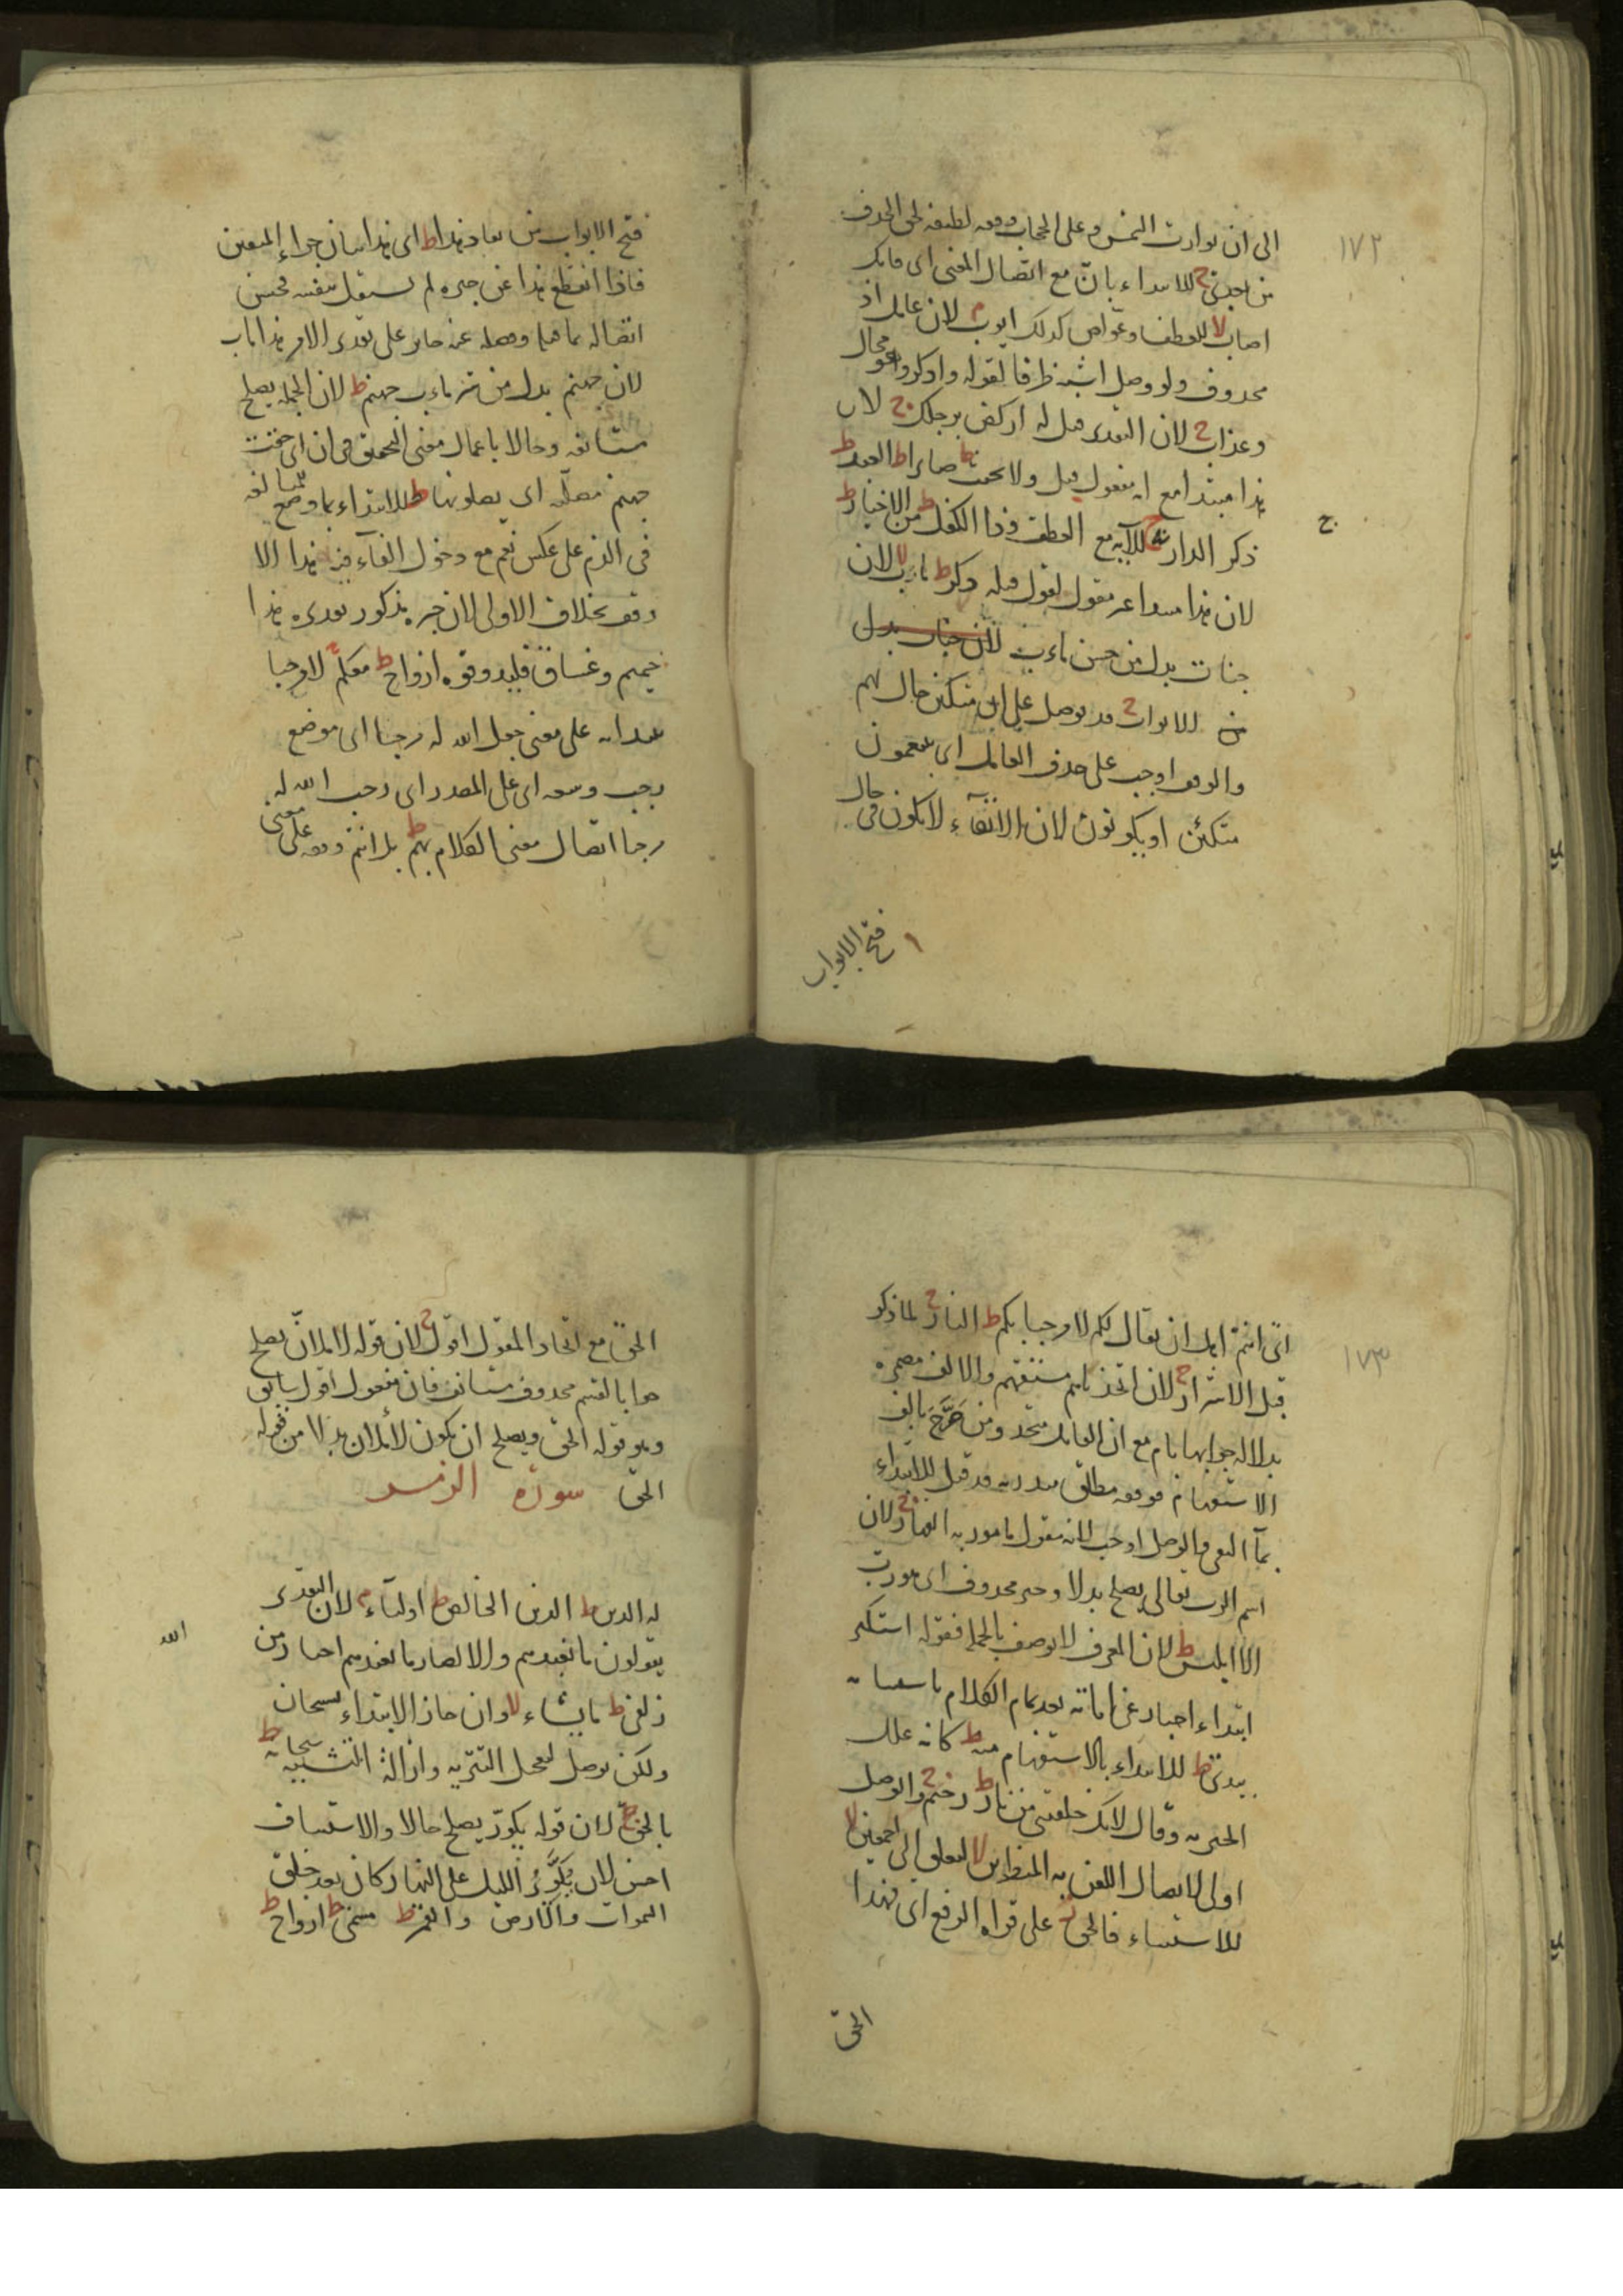 ١٧٢
الى ان توارت الشمس وعلى الحجاب وقفه لطيفه لحق الحذف
من بعدى ج للابتداء بان مع اتصال المعنى اى فانك
اصاب لا للعطف وغواص كذلك ايوب م لان عامل اذ
محذوف ولو وصل اشبه ظرفا لقوله واذكر وهو محال
وعذاب ج لان التقدير قيل له اركض برجلك ج لان
هذا مبتدا مع انه مفعول قيل ولا تحنث ط صابرا ط العبد ط
ذكر الدار ج للآية مع العطف وذا الكفل ط من الاخيار ط
ج
لان هذا مبتدا غير مقول لقول قبله ذكر ط مآب لا لان
جنات بدل من حسن مآب لان جنات بدل
من الابواب ج قد يوصل على ان متكئين حال لهم
والوقف اوجب على حذف العامل اى يتنعمون
متكئين او يكونون لان الاتقاء لا يكون فى حال
فتح الابواب
فتح الابواب من معاد هذا ط اى هذا بيان جزاء المتقين
فاذا انقطع هذا عن خبره لم يستقل بنفسه فحسن
اتصاله بما قبله وفصله عنه جايز على تقدير الامر هذا مآب
لان جهنم بدل من شر مآب جهنم ط لان الجملة يصلح
مستانفه وحالا باعمال معنى التحقيق فى ان اى حقت
جهنم مصلّه اى يصلونها ط للابتداء بما وضع للمبالغه
فى الذم على عكس نعم مع دخول الفآء فيه هذا الا
وقف بخلاف الاولى لان خبره مذكور تقديره هذا
حميم وغساق فليذوقوه ازواج ط معكم ج لا مرحبا
على معنى جعل الله له مرحبا اى موضع
رحب وسعه اى على المصدر اى رحب الله له
مرحبا اتصال معنى الكلام بهم ط بل انتم وقفه على معنى
١٧٣
اى انتم اهل ان يقال لكم لا مرحبا بكم ط النار ج لما ذكر
قبل الاشرار ج لان اتخذناهم مستفهم والالف مضمره
بدلاله جوابها بام مع ان القايل متحد ومن صَرَّحَ بالف
الاستفهام فوقفه مطلق وقد قيل للابتداء
بمآ النفى والوصل اوجب لانه مقول مامور به القهار ج لان
اسم الرب تعالى يصلح بدلا وخبر محذوف اى هو رب
الا ابليس ط لان المعرف لا يوصف بالجملة فقوله استكبر
ابتداء اخبار عن ابائه بعد تمام الكلام باستثنائه
بيدىّ ط للابتداء بالاستفهام منه ط كانه علل
الخيريه وقال لانك خلقتنى من نار ط رجيم ج والوصل
اولى لاتصال اللعن به المنظرين لا لتعلق الى اجمعين لا
للاستثناء فالحق ج على قراة الرفع اى فهذا
الحق
الحق مع اتحاد المقول اقول ج لان قوله لاملأنّ يصلح
جوابا لقسم محذوف مستانف فان مفعول اقول سابق
وهو قوله الحق ويصلح ان يكون لأملأن بدلا من قوله
الحق سورة الزمر
له الدين ط الدين الخالص ط اوليآء م لان التقدير
يقولون ما نعبدهم والا لصار ما نعبدهم اخبارا من
الله
زلفى ط ما يشاء لا وان جاز الابتداء بسبحان
ولكن يوصل لتعجيل التنزيه وازالة التشبيه سبحانه ط
بالحق ج لان قوله يكور يصلح حالا والاستيناف
احسن لان يُكَوِّرُ الليل على النهار كان بعد خلق
السموات والارض والقمر ط مسمى ط ازواج ط